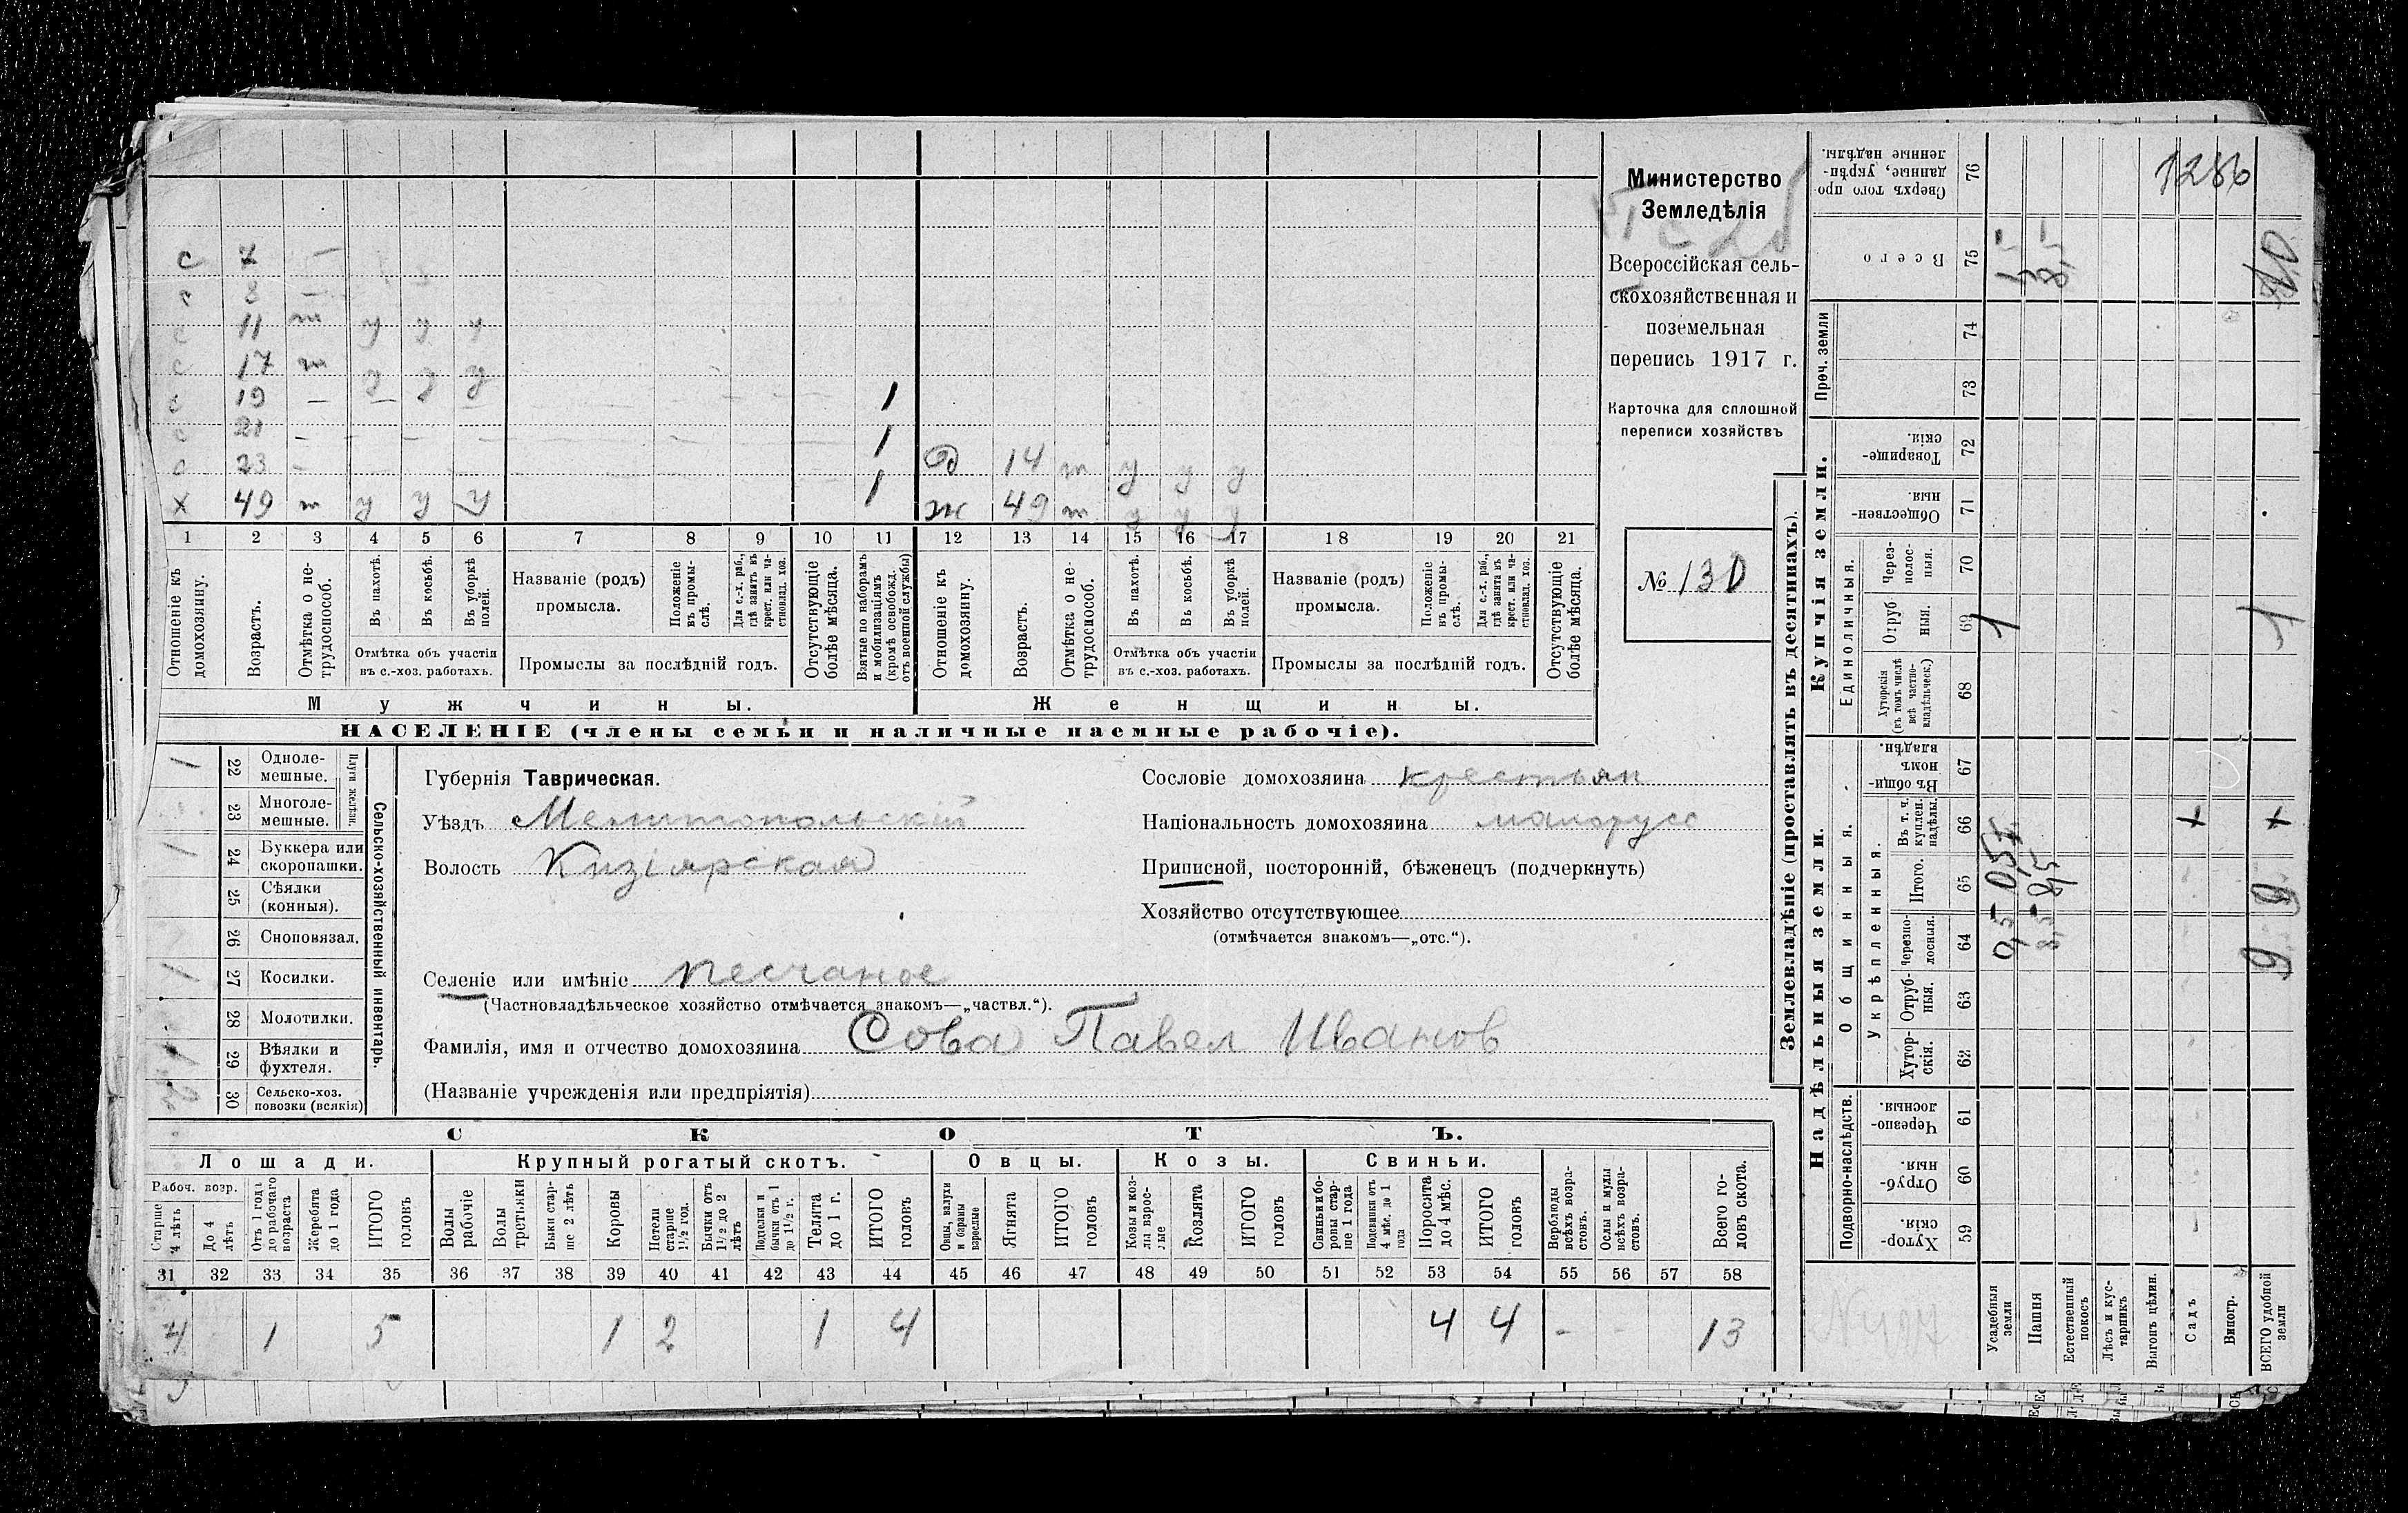 с 7 —
с 8 —
с 11 т у у у
с 17 т у у у
с 19 — — 1
с 21 — — 1
с 23 — 1 д 14 т у у у
х 49 т у у у ж 49 т у у у
1 2 3 4 5 6 7 8 9 10 11 12 13 14 15 16 17 18 19 20 21
Отношеніе къ домохозяину.
Возрастъ.
Отмѣтка о нетрудоспособ.
Въ пахотѣ.
Въ косьбѣ.
Въ уборкѣ полей.
Отмѣтка объ участіи въ с.-хоз. работахъ.
Названіе (родъ) промысла.
Положеніе въ промыслѣ.
Для с.-х. раб., гдѣ занятъ въ крест. или частновлад. хоз.
Промыслы за послѣдній годъ.
Отсутствующіе болѣе мѣсяца.
Взятые по наборамъ и мобилизаціямъ (кромѣ освобожд. отъ военной службы)
Отношеніе къ домохозяину.
Возрастъ.
Отмѣтка о нетрудоспособ.
Въ пахотѣ.
Въ косьбѣ.
Въ уборкѣ полей.
Отмѣтка объ участіи въ с.-хоз. работахъ.
Названіе (родъ) промысла.
Положеніе въ промыслѣ.
Для с.-х. раб., гдѣ занята въ крест. или частновлад. хоз.
Промыслы за послѣдній годъ.
Отсутствующіе болѣе мѣсяца.
Мужчины. Женщины.
НАСЕЛЕНІЕ (члены семьи и наличные наемные рабочіе).
Министерство
Земледѣлія
Всероссійская сель-
скохозяйственная и
поземельная
перепись 1917 г.
Карточка для сплошной
переписи хозяйствъ
№ 130
1 22 Одноле-мешные.
23 Многоле-мешные.
Плуги желѣзн.
1 24 Буккера или скоропашки.
25 Сѣялки (конныя).
26 Сноповязал.
1 27 Косилки.
28 Молотилки.
1 29 Вѣялки и фухтеля.
30 Сельско-хоз. повозки (всякія)
Сельско-хозяйственный инвентарь.
Губернія Таврическая.
Уѣздъ Мелитопольскій
Волость Кизіярская
Селеніе или имѣніе Песчаное
(Частновладѣльческое хозяйство отмѣчается знакомъ—„частвл.“).
Фамилія, имя и отчество домохозяина Сова Павел Иванов
(Названіе учрежденія или предпріятія)
Сословіе домохозяина крестьян
Національность домохозяина малорусс
Приписной, посторонній, бѣженецъ (подчеркнуть)
Хозяйство отсутствующее
(отмѣчается знакомъ—„отс.“).
СКОТЪ.
Лошади. Крупный рогатый скотъ. Овцы. Козы. Свиньи.
Рабоч. возр.
Старше 4 лѣтъ
До 4 лѣтъ
Отъ 1 года до рабочаго возраста
Жеребята до 1 года
ИТОГО головъ
Волы рабочіе
Волы третьяки
Быки старше 2 лѣтъ
Коровы
Нетели старше 1½ год.
Бычки отъ 1½ до 2 лѣтъ
Подтелки и бычки отъ 1 до 1½ г.
Телята до 1 г.
ИТОГО головъ
Овцы, валухи и бараны взрослые
Ягнята
ИТОГО головъ
Козы и козлы взрослые
Козлята
ИТОГО головъ
Свиньи и боровы старше 1 года
Подсвинки отъ 4 мѣс. до 1 года
Поросята до 4 мѣс.
ИТОГО головъ
Верблюды всѣхъ возрастовъ.
Ослы и мулы всѣхъ возрастовъ.
Всего головъ скота.
31 32 33 34 35 36 37 38 39 40 41 42 43 44 45 46 47 48 49 50 51 52 53 54 55 56 57 58
4 1 5 1 2 1 4 4 4 - 13
Землевладѣніе (проставлять въ десятинахъ).
1286
Сверхъ того проданные, укрѣпленные надѣлы. 76
Всего 75 10
Проч. земли 74 73
Купчія земли.
Товарищескія. 72
Общественныя. 71
Единоличныя.
Черезполосныя. 70
Отрубныя. 69 1 1
Хуторскія (въ томъ числѣ всѣ частновладѣльческ.) 68
Надѣльныя земли.
Общинныя.
Въ общинномъ владѣн. 67
Укрѣпленныя.
Въ т. ч. куплен. надѣлы. 66 + +
Итого. 65 0,5 8,5 9
Черезполосныя. 64 0,5 8,5 9
Отрубныя. 63
Хуторскія. 62
Подворно-наслѣдств.
Черезполосныя. 61
Отрубныя. 60
Хуторскія. 59
Усадебныя земли
Пашня
Естественный покосъ
Лѣсъ и кустарникъ
Выгонъ цѣлин.
Садъ
Виногр.
ВСЕГО удобной земли